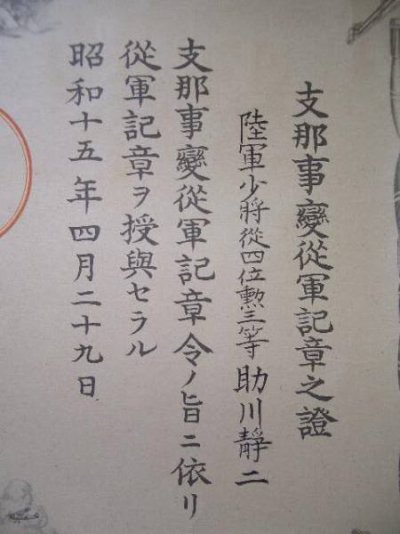 支那事變從軍記章之證
陸軍少將從四位勲三等 助川靜二
支那事變從軍記章令ノ旨ニ依リ
從軍記章ヲ授與セラル
昭和十五年四月二十九日